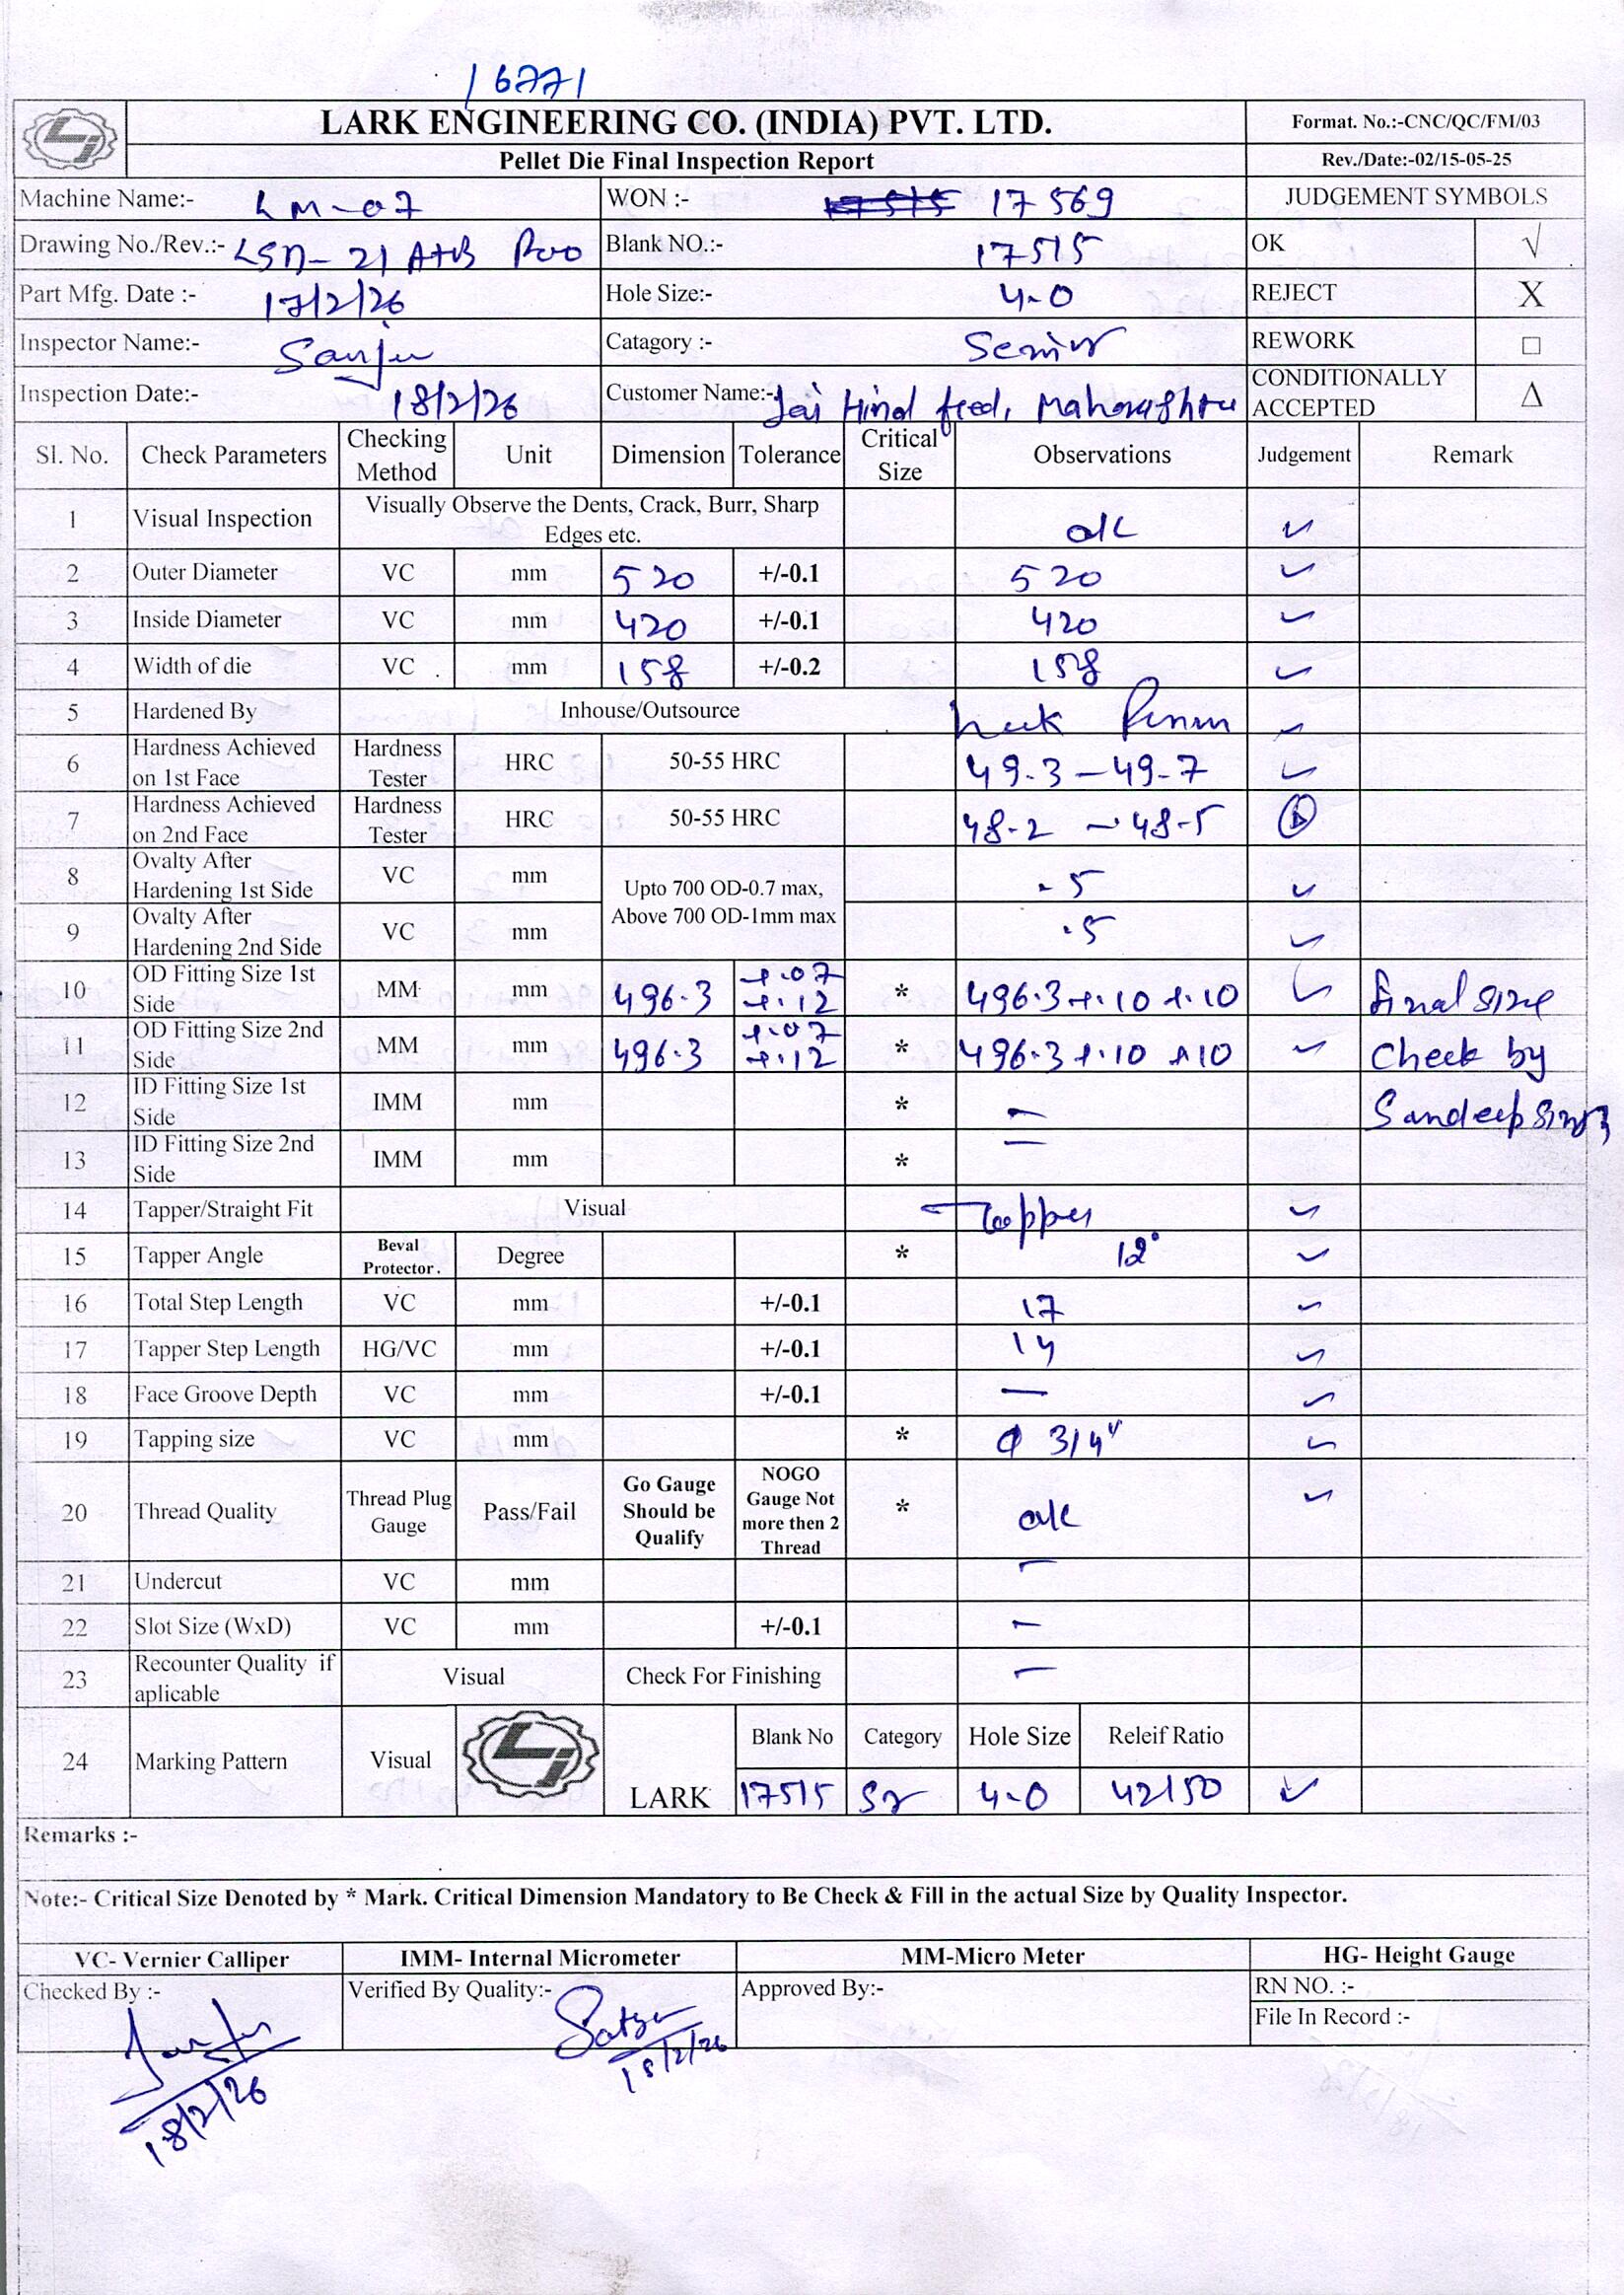 16771
LARK ENGINEERING CO. (INDIA) PVT. LTD.
Format. No.:-CNC/QC/FM/03
Pellet Die Final Inspection Report
Rev./Date:-02/15-05-25
Machine Name:- LM-07 WON :- 17515 17569 JUDGEMENT SYMBOLS
Drawing No./Rev.:- LSD-21 A+B R00 Blank NO.:- 17515 OK √
Part Mfg. Date :- 17/2/26 Hole Size:- 4.0 REJECT X
Inspector Name:- Sanju Catagory :- Senior REWORK □
Inspection Date:- 18/2/26 Customer Name:- Jai Hind feed, Maharashtra CONDITIONALLY ACCEPTED Δ
Sl. No. Check Parameters Checking Method Unit Dimension Tolerance Critical Size Observations Judgement Remark
1 Visual Inspection Visually Observe the Dents, Crack, Burr, Sharp Edges etc. ok ✓
2 Outer Diameter VC mm 520 +/-0.1 520 ✓
3 Inside Diameter VC mm 420 +/-0.1 420 ✓
4 Width of die VC mm 158 +/-0.2 158 ✓
5 Hardened By Inhouse/Outsource ✓
6 Hardness Achieved on 1st Face Hardness Tester HRC 50-55 HRC 49.3-49.7 ✓
7 Hardness Achieved on 2nd Face Hardness Tester HRC 50-55 HRC 48.2-48.5
8 Ovalty After Hardening 1st Side VC mm Upto 700 OD-0.7 max, Above 700 OD-1mm max .5 ✓
9 Ovalty After Hardening 2nd Side VC mm .5 ✓
10 OD Fitting Size 1st Side MM mm 496.3 +.07 +.12 * 496.3+.10 +.10 ✓ final size
11 OD Fitting Size 2nd Side MM mm 496.3 +.07 +.12 * 496.3+.10 +10 ✓ Check by
12 ID Fitting Size 1st Side IMM mm * — Sandeep Singh
13 ID Fitting Size 2nd Side IMM mm * —
14 Tapper/Straight Fit Visual Tapper ✓
15 Tapper Angle Beval Protector. Degree * 12° ✓
16 Total Step Length VC mm +/-0.1 17 ✓
17 Tapper Step Length HG/VC mm +/-0.1 14 ✓
18 Face Groove Depth VC mm +/-0.1 — ✓
19 Tapping size VC mm * Φ 3/4" ✓
20 Thread Quality Thread Plug Gauge Pass/Fail Go Gauge Should be Qualify NOGO Gauge Not more then 2 Thread * ok ✓
21 Undercut VC mm —
22 Slot Size (WxD) VC mm +/-0.1 —
23 Recounter Quality if aplicable Visual Check For Finishing —
24 Marking Pattern Visual LARK Blank No Category Hole Size Releif Ratio
17515 Sr 4.0 42/50 ✓
Remarks :-
Note:- Critical Size Denoted by * Mark. Critical Dimension Mandatory to Be Check & Fill in the actual Size by Quality Inspector.
VC- Vernier Calliper IMM- Internal Micrometer MM-Micro Meter HG- Height Gauge
Checked By :- Verified By Quality:- Approved By:- RN NO. :-
File In Record :-
Sanju
18/2/26
18/2/26